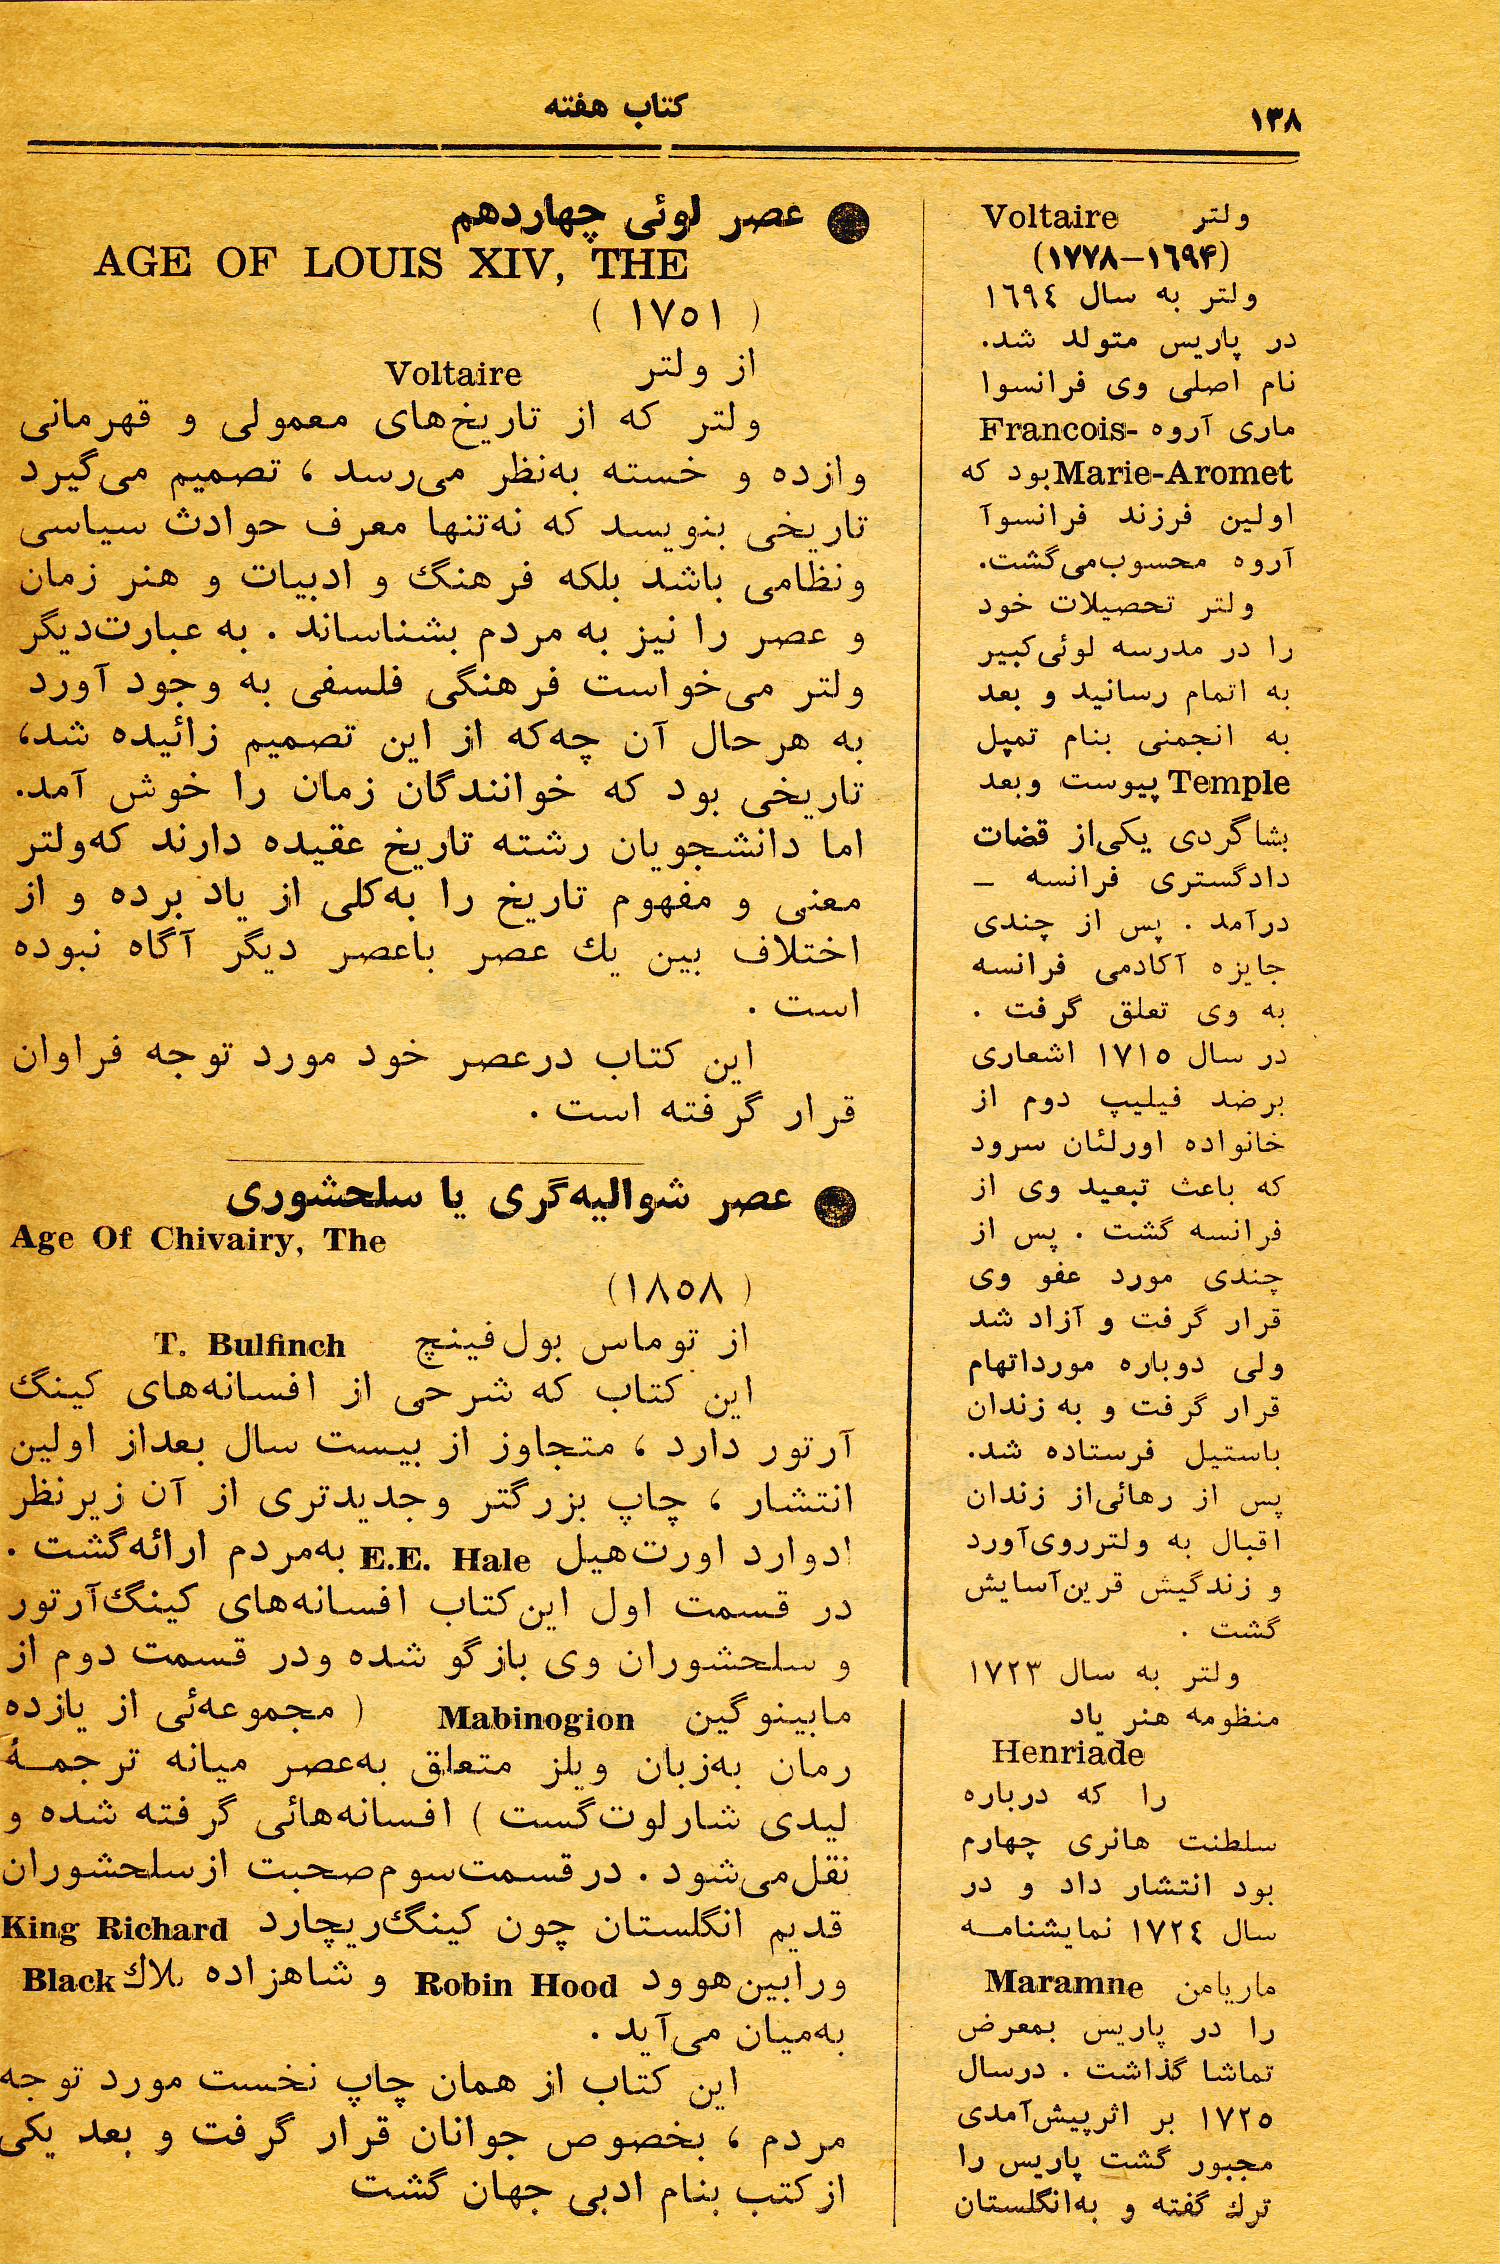 ۱۳۸
کتاب هفته
ولتر Voltaire
(۱۶۹۴–۱۷۷۸)
ولتر به سال ١٦٩٤
در پاریس متولد شد.
نام اصلی وی فرانسوا
ماری آروه Francois-
Marie-Aromet بود که
اولین فرزند فرانسوآ
آروه محسوب می‌گشت.
ولتر تحصیلات خود
را در مدرسه لوئی کبیر
به اتمام رسانید و بعد
به انجمنی بنام تمپل
Temple پیوست و بعد
بشاگردی یکی از قضات
دادگستری فرانسه –
درآمد . پس از چندی
جایزه آکادمی فرانسه
به وی تعلق گرفت .
در سال ۱۷۱۵ اشعاری
برضد فیلیپ دوم از
خانواده اورلئان سرود
که باعث تبعید وی از
فرانسه گشت . پس از
چندی مورد عفو وی
قرار گرفت و آزاد شد
ولی دوباره مورد اتهام
قرار گرفت و به زندان
باستیل فرستاده شد.
پس از رهائی از زندان
اقبال به ولتر روی آورد
و زندگیش قرین آسایش
گشت .
ولتر به سال ۱۷۲۳
منظومه هنر یاد
Henriade
را که درباره
سلطنت هانری چهارم
بود انتشار داد و در
سال ١٧٢٤ نمایشنامه
ماریامن Maramne
را در پاریس بمعرض
تماشا گذاشت . درسال
۱۷۲۵ بر اثر پیش‌آمدی
مجبور گشت پاریس را
ترك گفته و به‌انگلستان
● عصر لوئی چهاردهم
AGE OF LOUIS XIV, THE
( ۱۷۵۱ )
از ولتر Voltaire
ولتر که از تاریخ‌های معمولی و قهرمانی
وازده و خسته به‌نظر می‌رسد ، تصمیم می‌گیرد
تاریخی بنویسد که نه‌تنها معرف حوادث سیاسی
ونظامی باشد بلکه فرهنگ و ادبیات و هنر زمان
و عصر را نیز به مردم بشناساند . به عبارت‌دیگر
ولتر می‌خواست فرهنگی فلسفی به وجود آورد
به هرحال آن چه‌که از این تصمیم زائیده شد،
تاریخی بود که خوانندگان زمان را خوش آمد.
اما دانشجویان رشته تاریخ عقیده دارند که‌ولتر
معنی و مفهوم تاریخ را به‌کلی از یاد برده و از
اختلاف بین یك عصر باعصر دیگر آگاه نبوده
است .
این کتاب درعصر خود مورد توجه فراوان
قرار گرفته است .
● عصر شوالیه‌گری یا سلحشوری
Age Of Chivairy, The
( ۱۸۵۸)
از توماس بول‌فینچ T. Bulfinch
این کتاب که شرحی از افسانه‌های کینگ
آرتور دارد ، متجاوز از بیست سال بعداز اولین
انتشار ، چاپ بزرگتر وجدیدتری از آن زیرنظر
ادوارد اورت‌هیل E.E. Hale به‌مردم ارائه‌گشت .
در قسمت اول این‌کتاب افسانه‌های کینگ‌آرتور
و سلحشوران وی بازگو شده ودر قسمت دوم از
مابینوگین Mabinogion ( مجموعه‌ئی از یازده
رمان به‌زبان ویلز متعلق به‌عصر میانه ترجمــهٔ
لیدی شارلوت‌گست ) افسانه‌هائی گرفته شده و
نقل‌می‌شود . درقسمت‌سوم‌صحبت ازسلحشوران
قدیم انگلستان چون کینگ‌ریچارد King Richard
ورابین‌هوود Robin Hood و شاهزاده بلاك Black
به‌میان می‌آید .
این کتاب از همان چاپ نخست مورد توجه
مردم ، بخصوص جوانان قرار گرفت و بعد یکی
ازکتب بنام ادبی جهان گشت